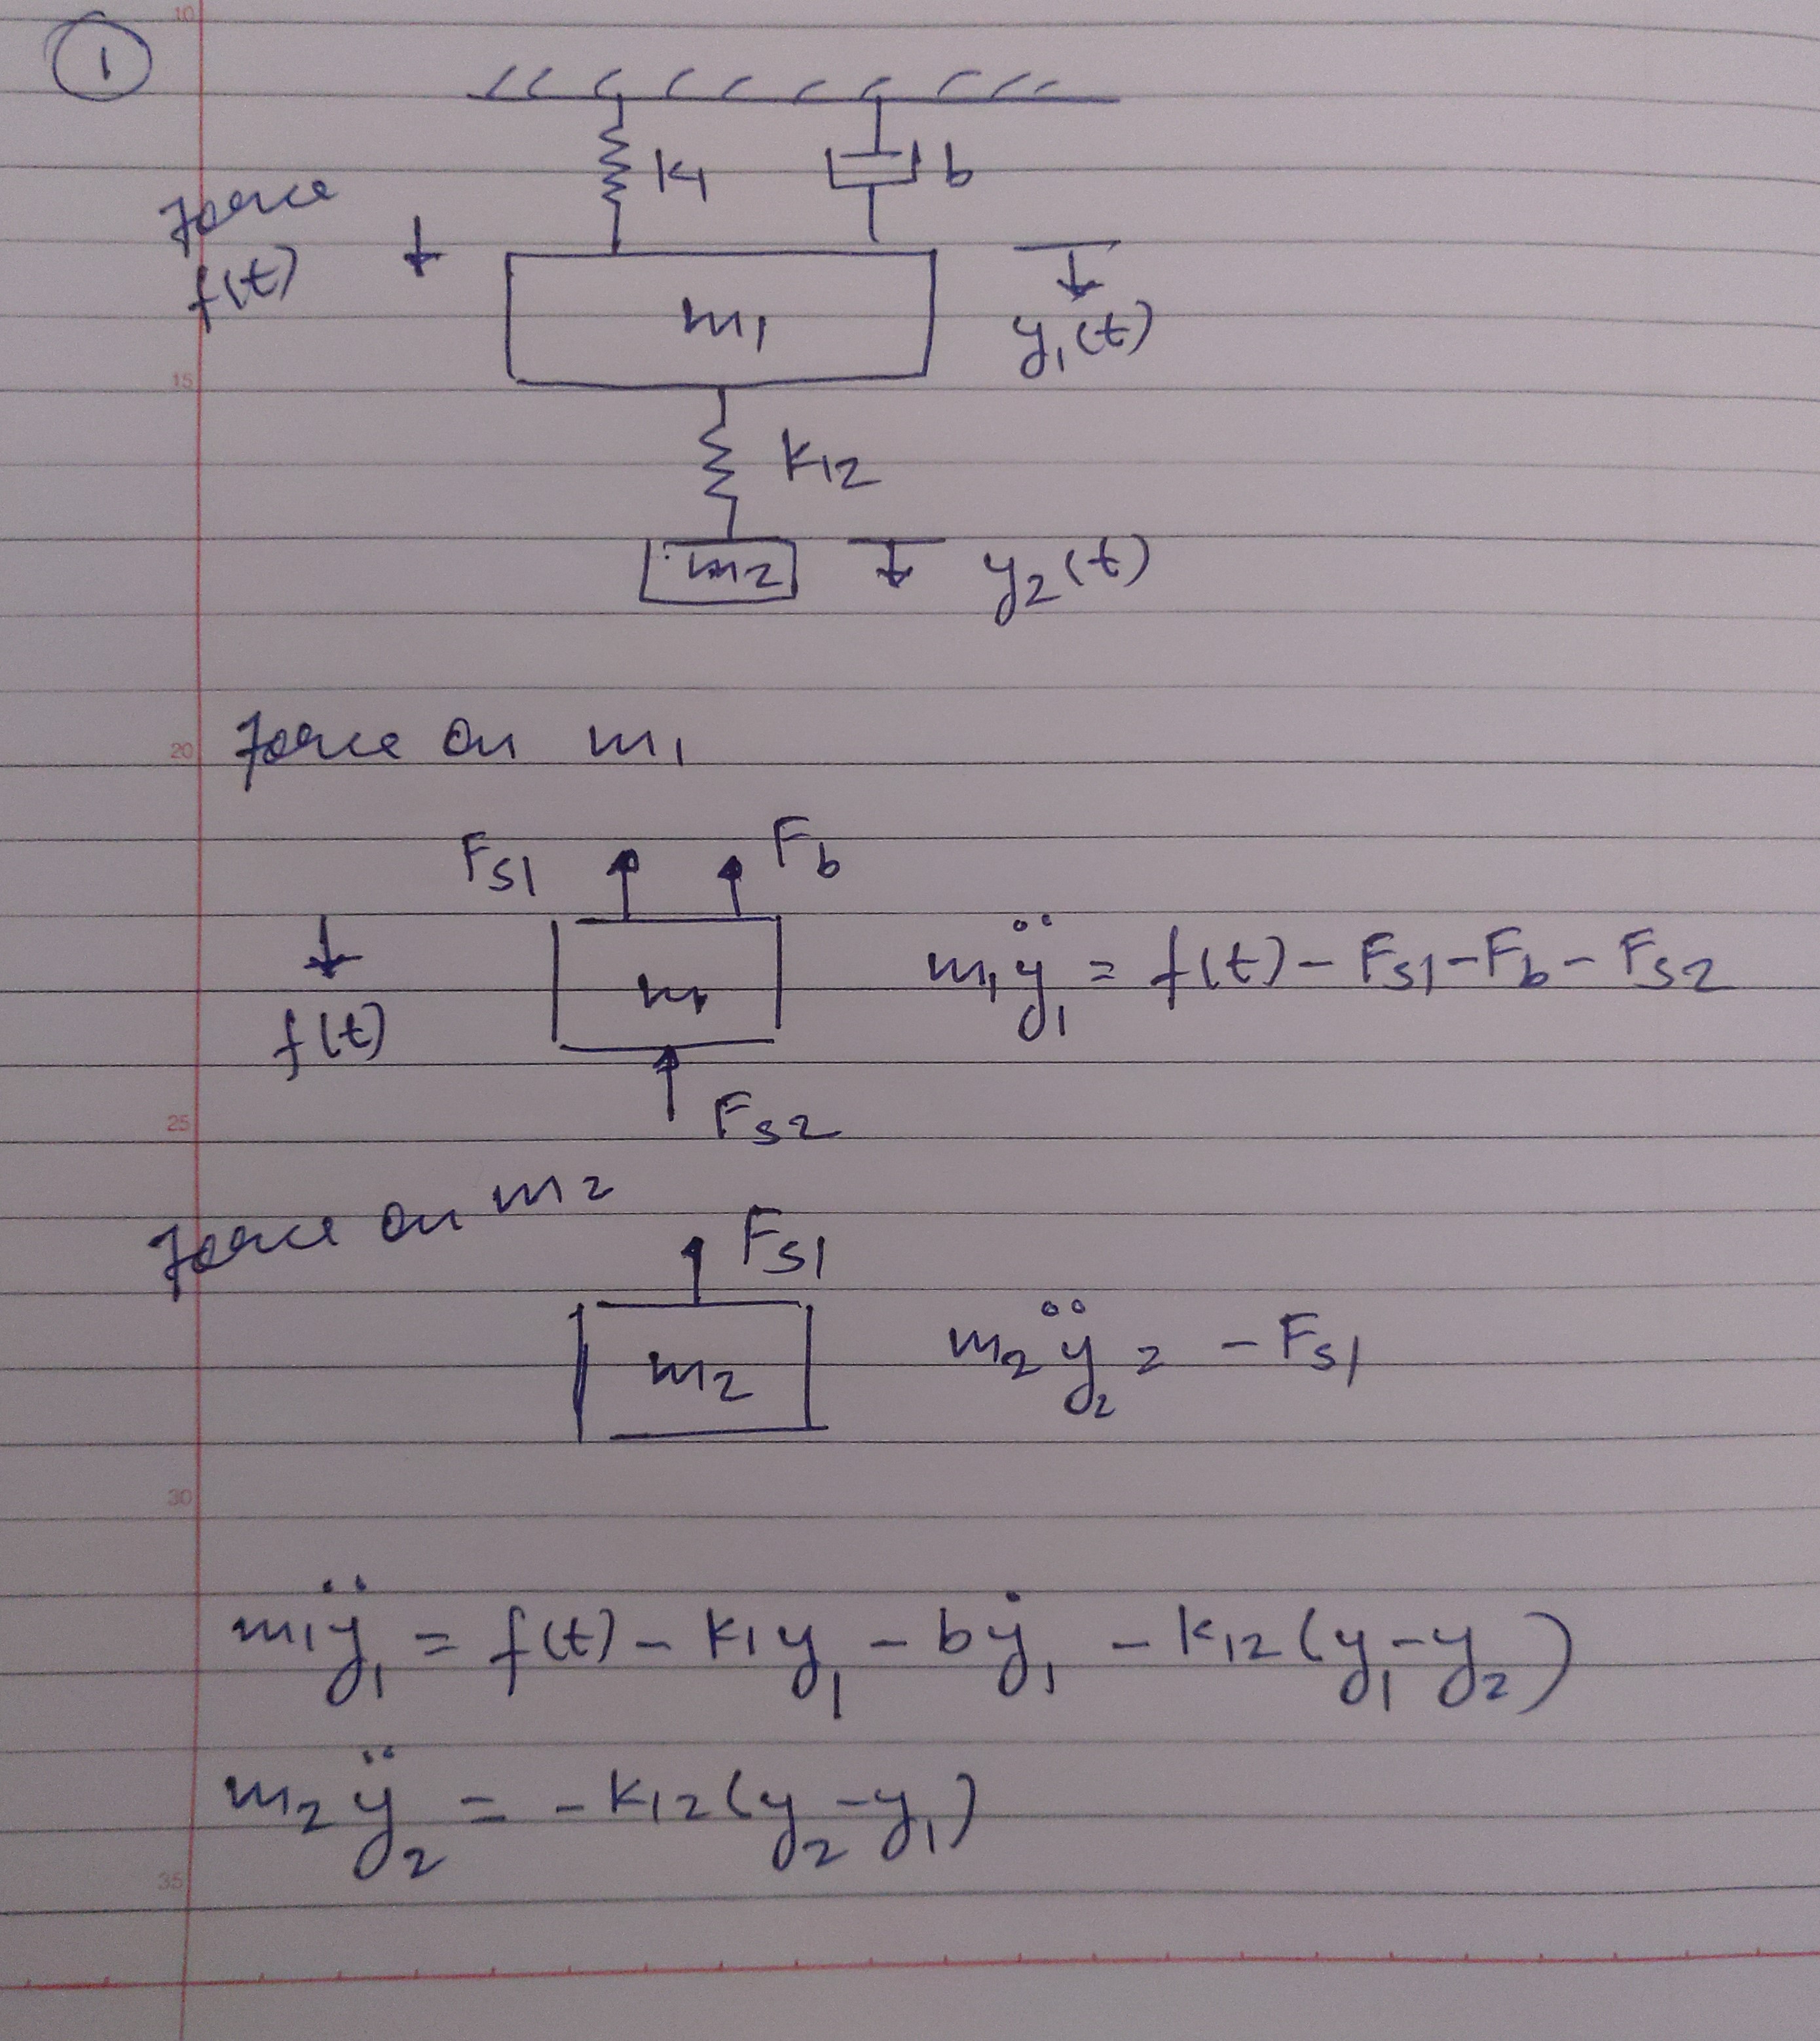 10
1
k1
b
force
f(t)
m1
y1(t)
15
k12
m2
y2(t)
20
force on m1
Fs1
Fb
m1
m1ÿ1 = f(t) - Fs1 - Fb - Fs2
f(t)
Fs2
25
force on m2
Fs1
m2
m2ÿ2 = - Fs1
30
m1ÿ1 = f(t) - k1y1 - bẏ1 - k12(y1-y2)
m2ÿ2 = - k12(y2-y1)
35